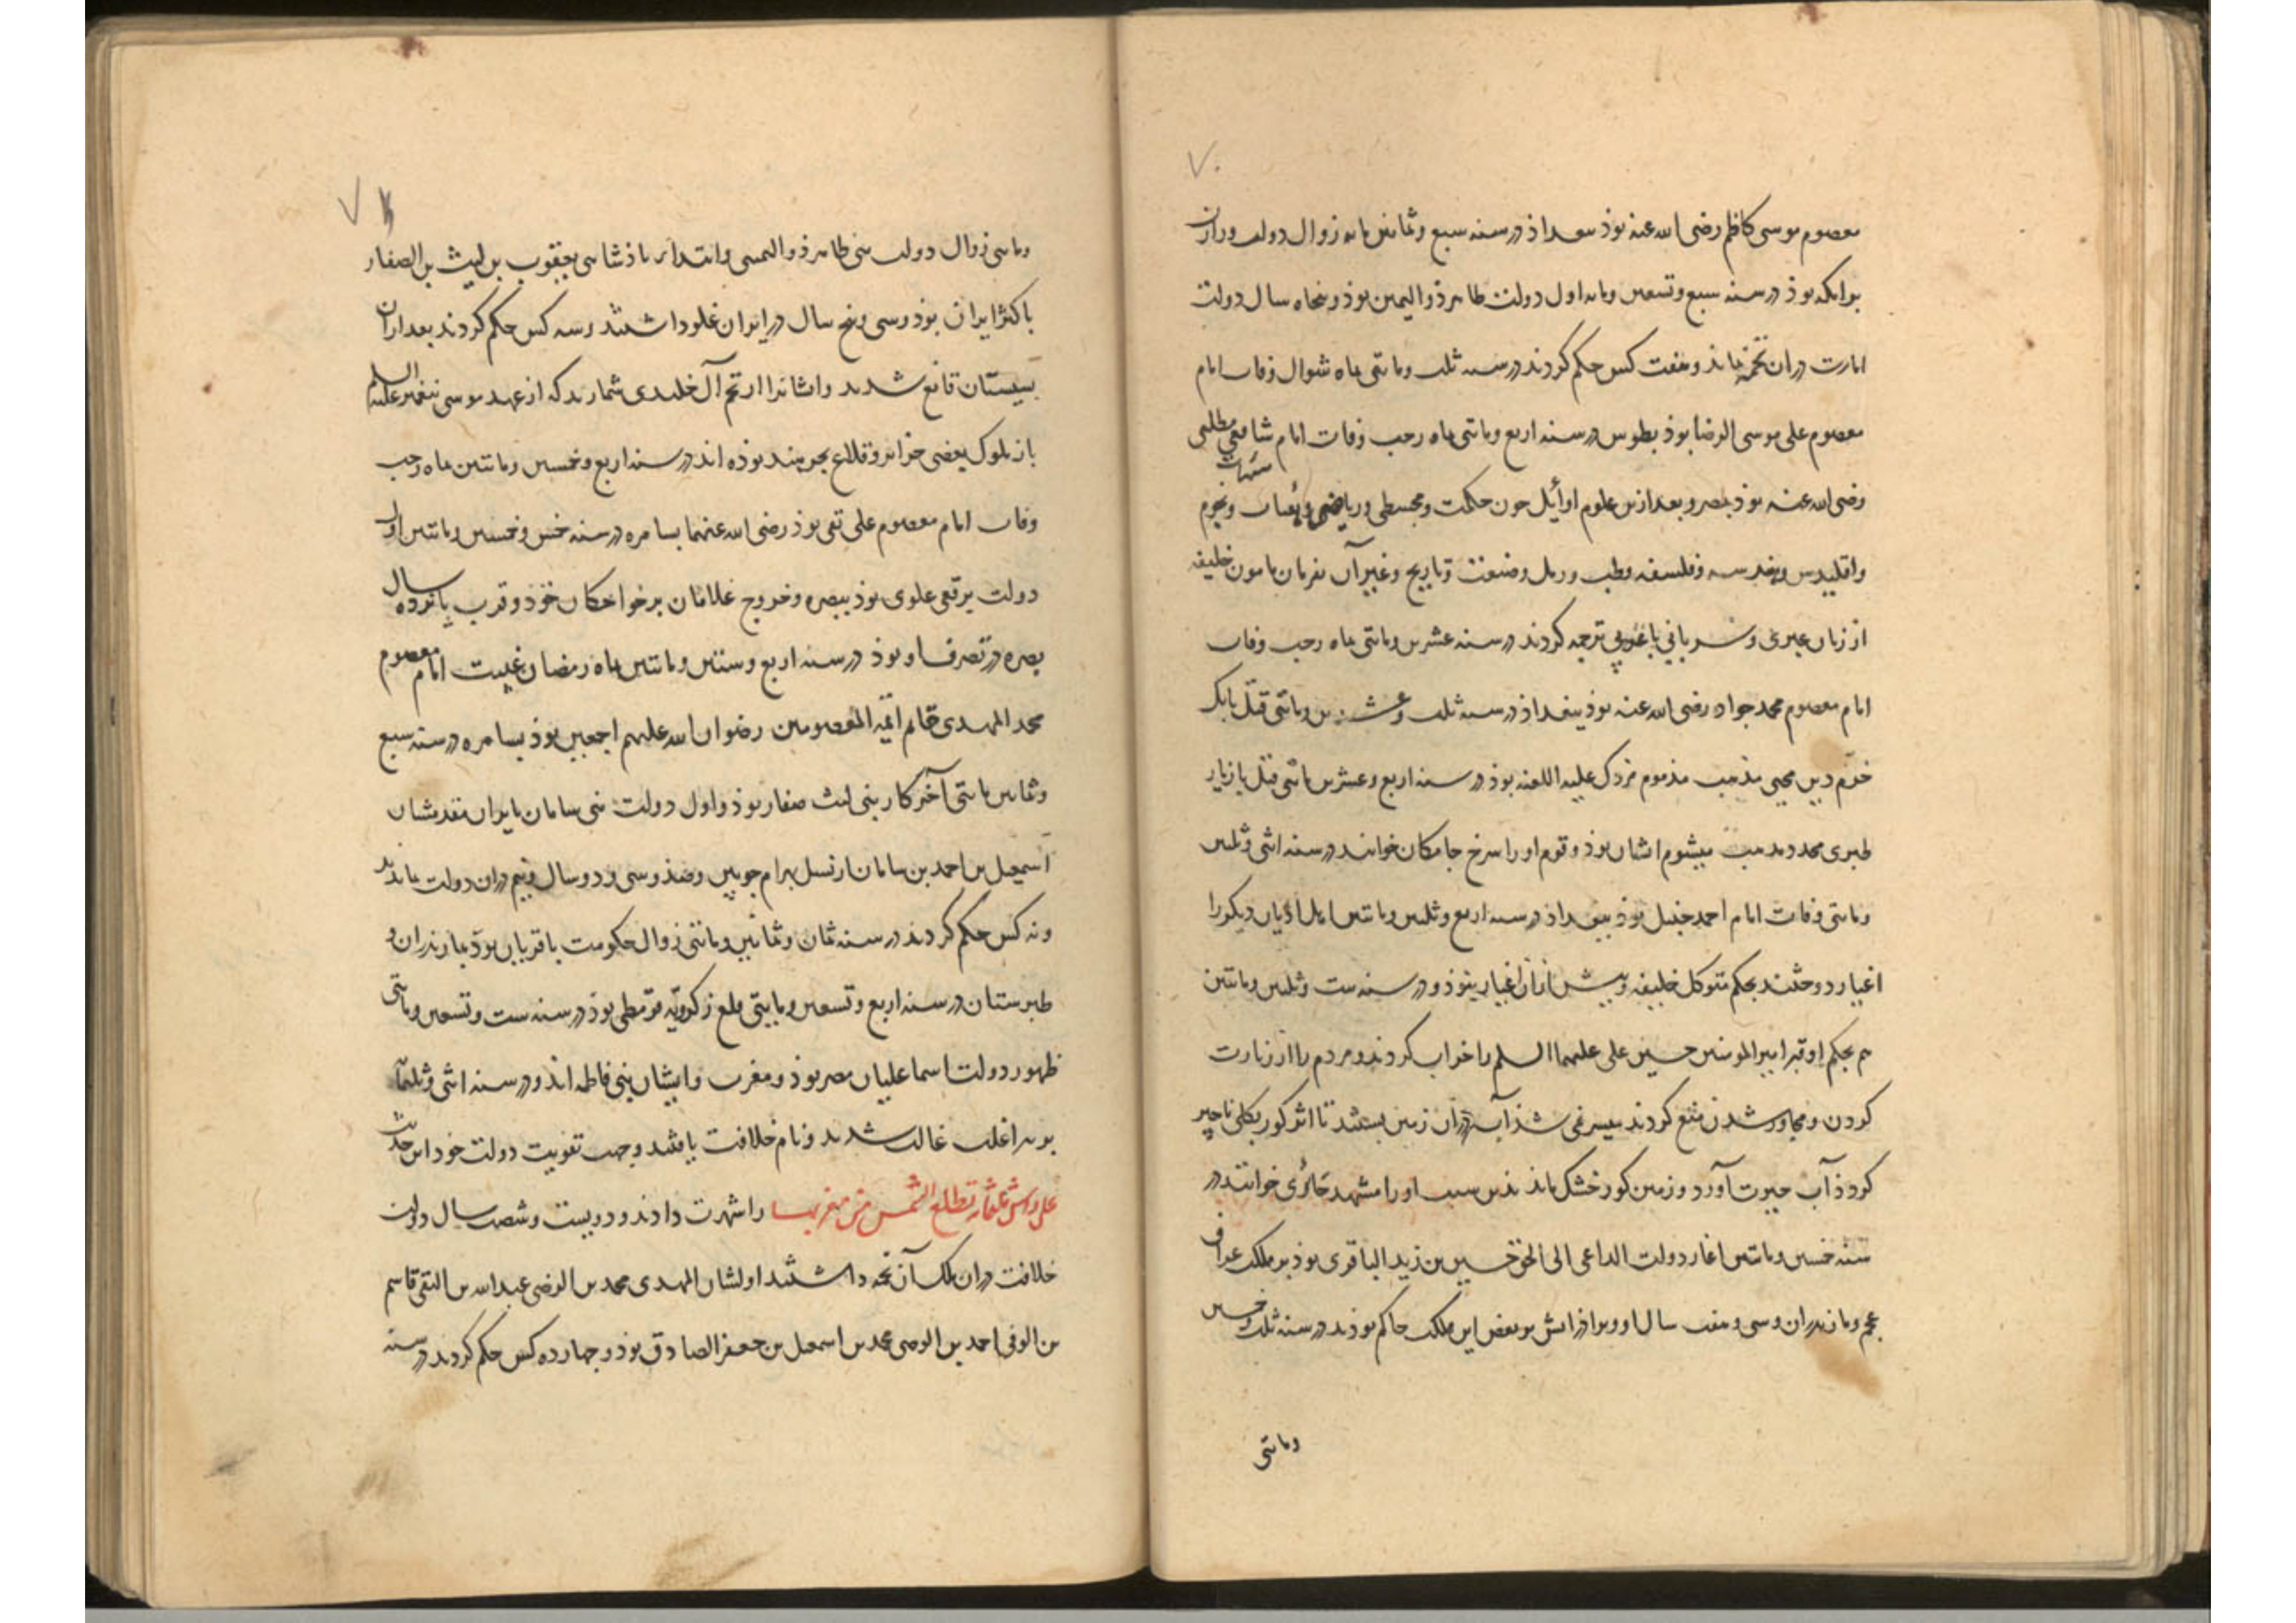 ۷۰
معصوم موسی کاظم رضی الله عنه بوذ ببغداذ در سنه سبع و ثمانین مایه زوال دولت وزارت
برامکه بوذ در سنه سبع و تسعین و مایه اول دولت طاهر ذوالیمین بوذ و پنجاه سال دولت
امارت دران تخمه بماند و هفت کس حکم کردند در سنه ثلث و مایتی ماه شوال وفات امام
معصوم علی موسی الرضا بوذ بطوس در سنه اربع و مایتی ماه رجب وفات امام شافعی مطلبی
رضی الله عنه بوذ بمصر و بعد ازین علوم اوائل چون حکمت و مجسطی و ریاضی و نجوم
و اقلیدس و هندسه و فلسفه و طب و رمل و صنعت و تاریخ و غیر آن بفرمان مامون خلیفه
از زبان عبری و سریانی با عربی ترجمه کردند در سنه عشرین و مایتی ماه رجب وفات
امام معصوم محمد جواد رضی الله عنه بوذ ببغداذ در سنه ثلث و عشرین و مایتی قتل بابک
خرّم دین محیی مذهب مذموم مزدک علیه اللعنه بوذ در سنه اربع و عشرین مایتی قتل مازیار
طبری مجدد مذهب میشوم ایشان بوذ و قوم او را سرخ جامگان خوانند در سنه اثنی و ثلثین
و مایتی وفات امام احمد حنبل بوذ ببغداذ در سنه اربع و ثلثین و مایتین اهل ادیان دیگر را
اغیار دوختند بحکم متوکل خلیفه و پیش ازان اغیار نبوذ و در سنه ست و ثلثین و مایتین
هم بحکم او قبر امیر المومنین حسین علی علیهما السلم را خراب کردند و مردم را از زیارت
کردن و مجاور شدن منع کردند میسر نمی شذ آب دران زمین بستند تا اثر گور بکلی ناچیز
کردذ آب حیرت آورد و زمین گور خشک ماند بذین سبب او را مشهد حائری خوانند در
سنه خمسین و مایتین اغاز دولت الداعی الی الحق حسین بن زید الباقری بوذ بر ملک عراق
عجم و مازندران و سی و هفت سال او و برادرانش بر بعض این ملک حاکم بوذند در سنه ثلث و خمسین
و مایتی
۷۱
و مایتی زوال دولت بنی طاهر ذوالیمین و ابتداء پاذشاهی یعقوب بن لیث بن الصفار
با کثر ایران بوذ و سی و پنج سال در ایران غلو داشتند و سه کس حکم کردند بعد ازان
بسیستان قانع شدند و ایشانرا از تخم آل خلیدی شمارند که از عهد موسی پیغمبر علیه السلم
باز ملوک بعضی جزایر و قلاع بحر هند بوده اند در سنه اربع و خمسین و مایتین ماه رجب
وفات امام معصوم علی نقی بوذ رضی الله عنهما بسامره در سنه خمس و خمسین و مایتین اول
دولت برقعی علوی بوذ ببصره و خروج غلامان بر خواجگان خوذ و قرب پانزده سال
بصره در تصرف او بوذ در سنه اربع و ستین و مایتین ماه رمضان غیبت امام معصوم
محمد المهدی خاتم ائمه المعصومین رضوان الله علیهم اجمعین بوذ بسامره در سنه سبع
و ثمانین مایتی آخر کار بنی لیث صفار بوذ و اول دولت بنی سامان بایران مقدمشان
اسمعیل بن احمد بن سامان از نسل بهرام چوبین و صذ و سی و دو سال و نیم دران دولت بماندند
و نه کس حکم کردند در سنه ثمان و ثمانین و مایتی زوال حکومت باقریان بوذ بمازندران و
طبرستان در سنه اربع و تسعین و مایتی قلع زکرویه قرمطی بوذ در سنه ست و تسعین و مایتی
ظهور دولت اسماعلیان مصر بوذ و مغرب و ایشان بنی فاطمه اند و در سنه اثنی و ثلثمایه
بر بنی اغلب غالب شدند و نام خلافت یافتند و جهت تقویت دولت خود این حدیث
علی راس ثلثمائه تطلع الشمس من مغربها را شهرت دادند و دویست و شصت سال دولت
خلافت دران ملک آن تخمه داشتند اولشان المهدی محمد بن الرضی عبدالله بن التقی قاسم
بن الوفی احمد بن الوصی محمد بن اسمعیل بن جعفر الصادق بوذ و چهارده کس حکم کردند در سنه